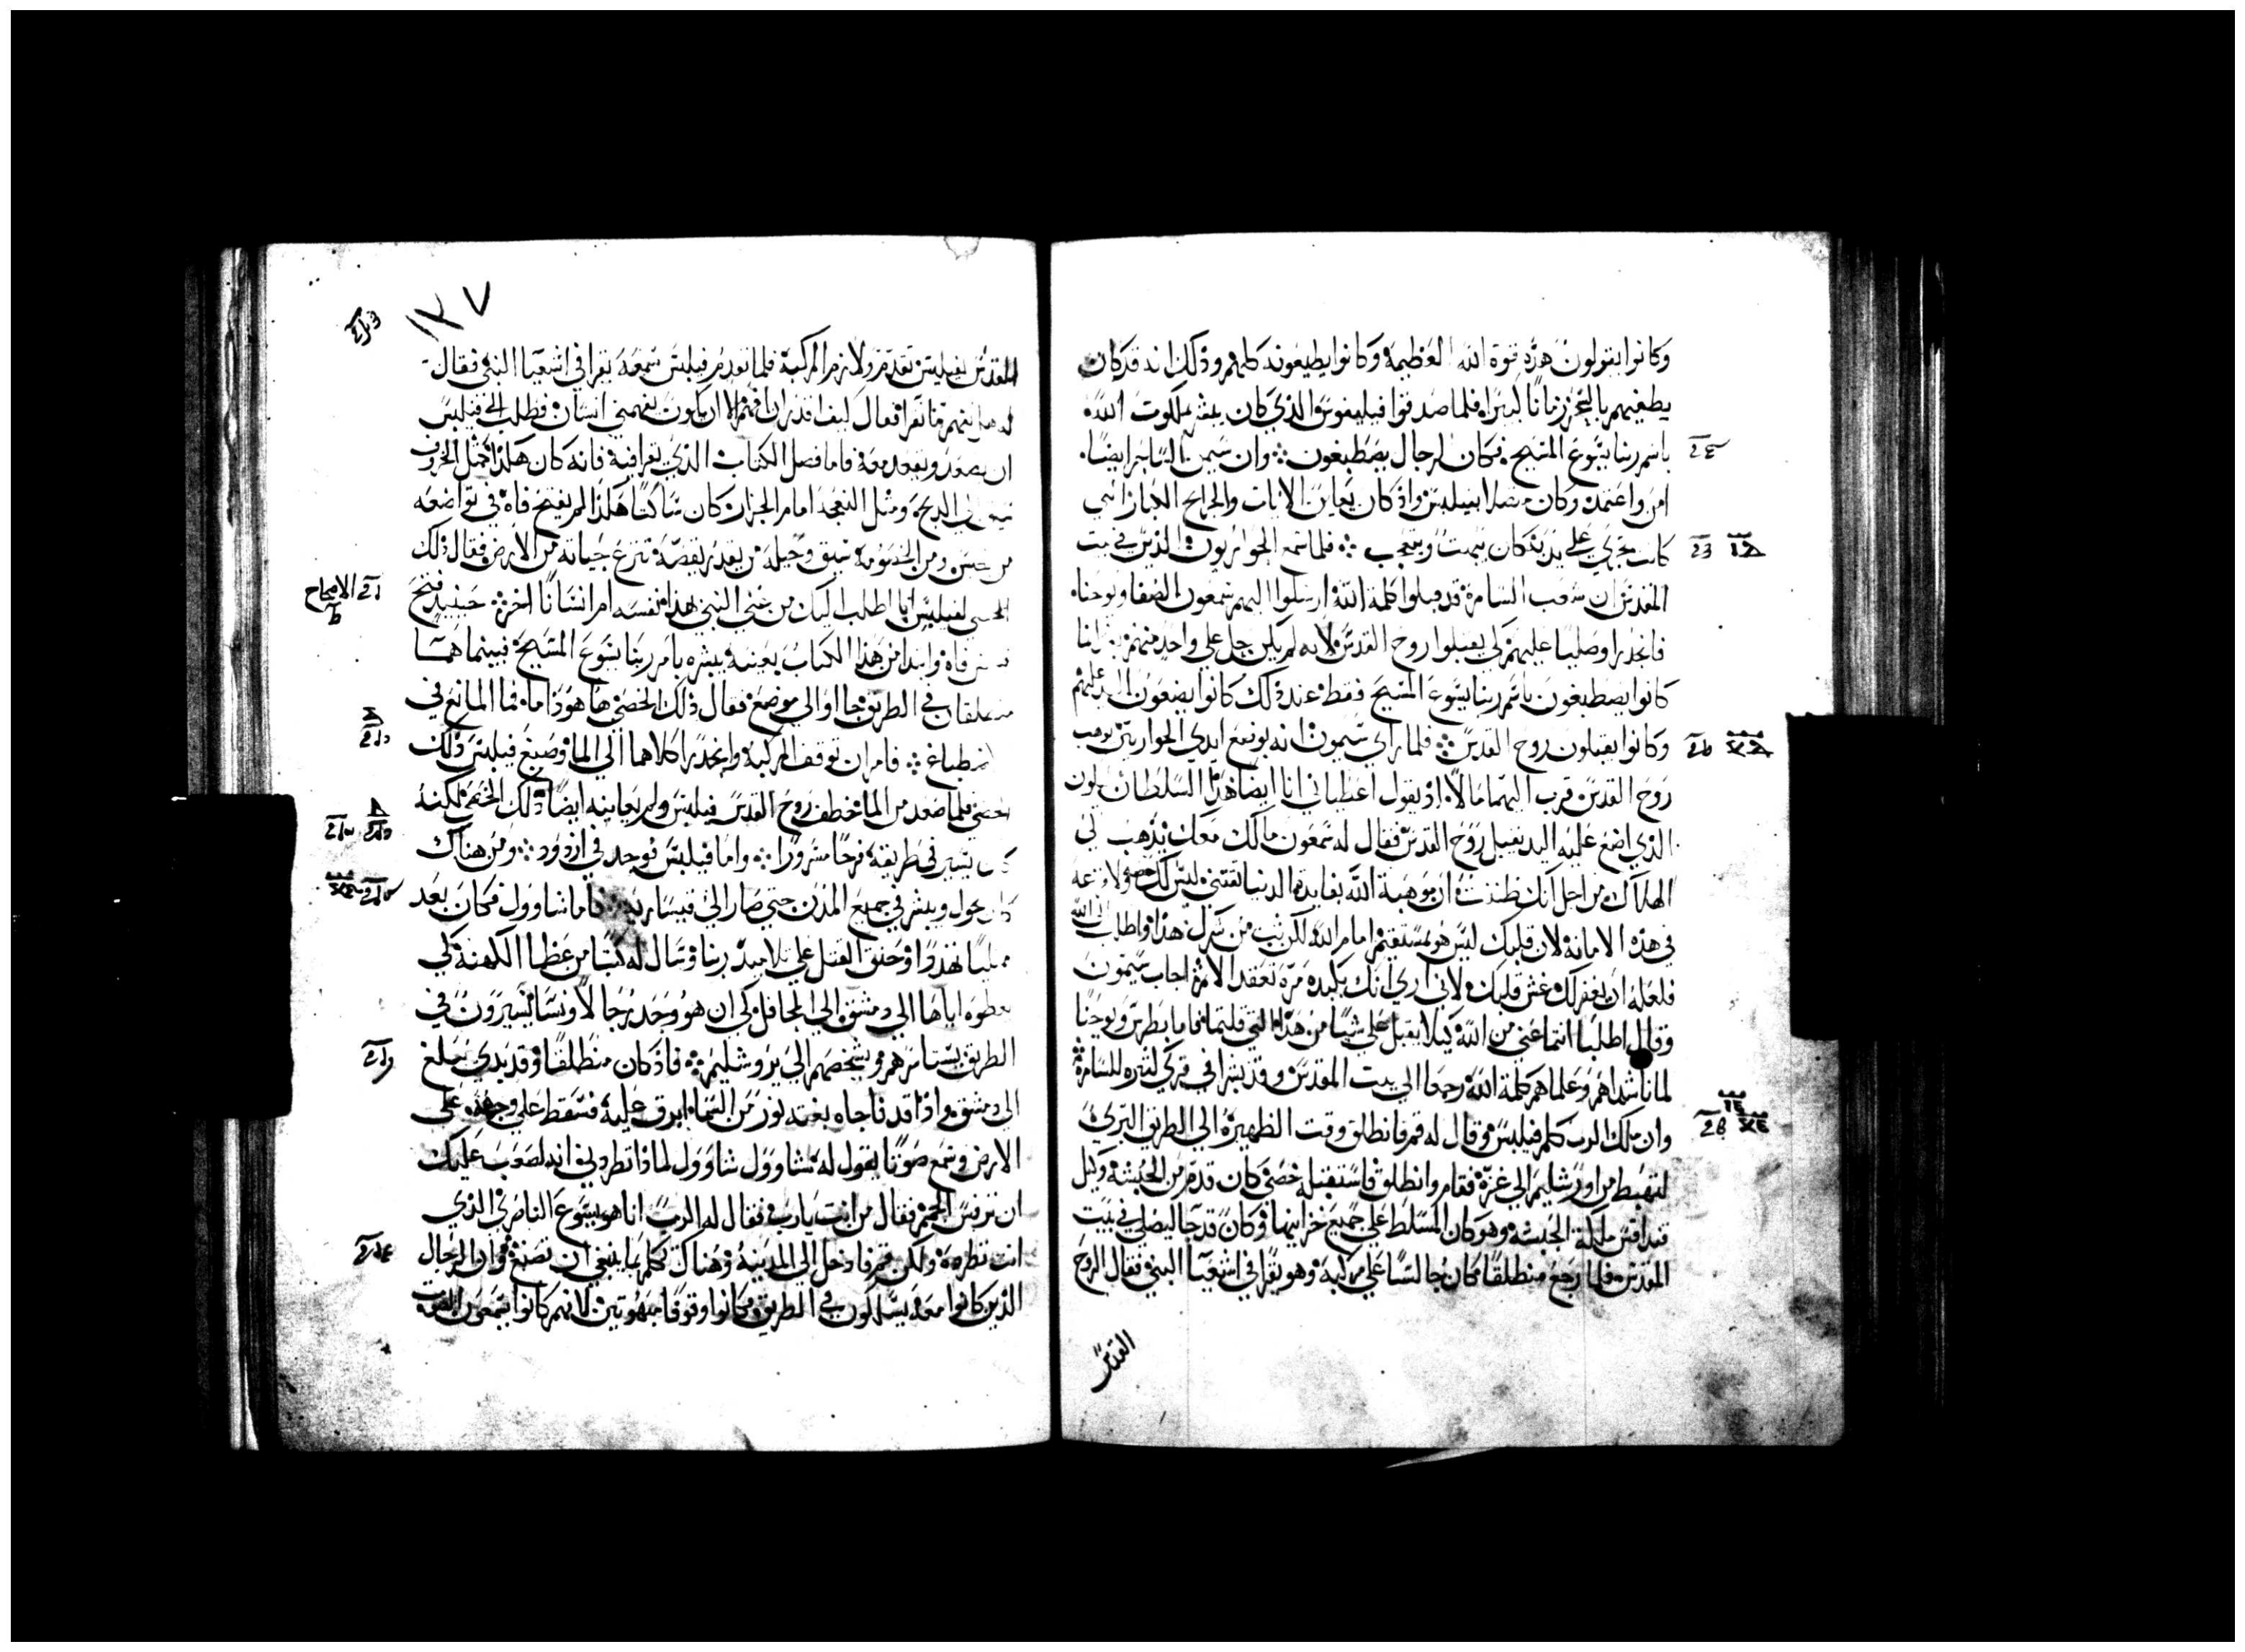 وكانوا يقولون هذه قوة الله العظيمة وكانوا يطيعونه كلهم وذلك انه قد كان
يطغيهم بالسحر زمانا كبيرا فلما صدقوا فيليفوس الذي كان يبشر بملكوت الله
باسم ربنا يسوع المسيح فكان الرجال يصطبغون وان سيمن الساحر ايضا
امن واعتمد وكان متصلا بفيلبس واذ كان يعاين الايات والجرايح الكبار التي
كانت تجري على يديه كان يبهت ويتعجب فلما سمع الحواريون الذين في بيت
المقدس ان شعب السامرة قد قبلوا كلمة الله ارسلوا اليهم شمعون الصفا ويوحنا
فانحدرا وصليا عليهم كي يقبلوا روح القدس لانه لم يكن حل على واحد منهم وانما
كانوا يصطبغون باسم ربنا يسوع المسيح فقط عند ذلك كانوا يضعون اليد عليهم
وكانوا يقبلون روح القدس فلما راى سيمون انه بوضع ايدي الحواريين يوهب
روح القدس قرب اليهما مالا اذ يقول اعطياني انا ايضا هذا السلطان ليكون
الذي اضع عليه اليد يقبل روح القدس فقال له شمعون مالك معك يذهب الى
الهلاك من اجل انك ظننت ان موهبة الله بفايدة الدنيا تقتنى ليس لك حصة ولا قرعة
في هذه الامانة لان قلبك ليس هو بمستقيم امام الله لكن تب من شرك هذا واطلب الى الله
فلعله ان يغفر لك غش قلبك لاني ارى انك بكبده مرة وتعقد الاثم اجاب سيمون
وقال اطلبا انتما عني من الله كيلا يقبل علي شيا من هذا التي قلتما فاما بطرس ويوحنا
لما ناشداهم وعلماهم كلمة الله رجعا الى بيت المقدس وقد بشرا في قرى كثيره للسامرة
وان ملك الرب كلم فيلبس وقال له قم فانطلق وقت الظهيرة الى الطريق البري
لتهبط من اورشليم الى غزة فقام وانطلق فاستقبله خصي كان قدم من الحبشة وكيل
قنداقس ملكة الحبشة وهو كان المسلط على جميع خزاينها وكان قد جا ليصلي في بيت
المقدس فلما رجع منطلقا كان جالسا على مركبة وهو يقرا في اشعيا النبي فقال الروح
القدس
١٢٧
المقدس لفيلبس تقدم ولازم المركبة فلما تقدم فيلبس سمعه يقرا في اشعيا النبي فقال
له هل تفهم ما تقرا فقال كيف اقدر ان افهم الا ان يكون يفهمني انسان فطلب الى فيلبس
ان يصعد ويقعد معه فاما فصل الكتاب الذي يقرا فيه فانه كان هكذا كمثل الخروف
سيق الى الذبح ومثل النعجة امام الجزاز كان ساكتا هكذا لم يفتح فاه في تواضعه
من حبس ومن الخصومة سيق وجيله من يقدر يقصه تنزع حياته من الارض فقال ذلك
الخصي لفيلبس انا اطلب اليك من عنى النبي بهذا نفسه ام انسانا اخر حينيذ فتح
فيلبس فاه وابتدا من هذا الكتاب بعينه يبشره بامر ربنا يسوع المسيح فبينما هما
منطلقان في الطريق جااوا الى موضع فقال ذلك الخصي ها هوذا ما فما المانع في
الاصطباغ فامر ان توقف المركبة وانحدرا كلاهما الى الما وصبغ فيلبس ذلك
الخصي فلما صعد من الما خطف روح القدس فيلبس ولم يعاينه ايضا ذلك الخصي لكنه
كان يسير في طريقه فرحا مسرورا واما فيلبس فوجد في ازدود ومن هناك
كان يجول ويبشر في جميع المدن حتى صار الى قيسارية فاما شاوول فكان بعد
ممليا تهددا وحنق القتل على تلاميذ ربنا وسال له كتبا من عظما الكهنة كي
يعطوه اياها الى دمشق الى المحافل كي ان هو وجد رجالا ونسا يسيرون في
الطريق يستاسرهم ويشخصهم الى يروشليم فاذ كان منطلقا وقد بدى يبلغ
الى دمشق واذا قد فاجاه بغتة نور من السما ابرق عليه فسقط على وجهه على
الارض وسمع صوتا يقول له شاوول شاوول لماذا تطردني انه لصعب عليك
ان ترفس المهمز فقال من انت يارب فقال له الرب انا هو يسوع الناصري الذي
انت تطرده ولكن قم فادخل الى المدينة وهناك تكلم بما ينبغي ان تصنع وان الرجال
الذين كانوا معه يسلكون في الطريق كانوا وقوفا مبهوتين لانهم كانوا يسمعون الصوت
الاصحاح